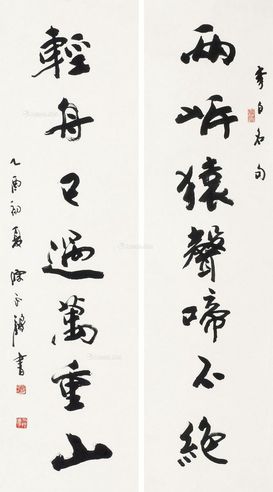 李白名句
兩岸猿聲啼不絕
輕舟已過萬重山
乙酉初夏 書